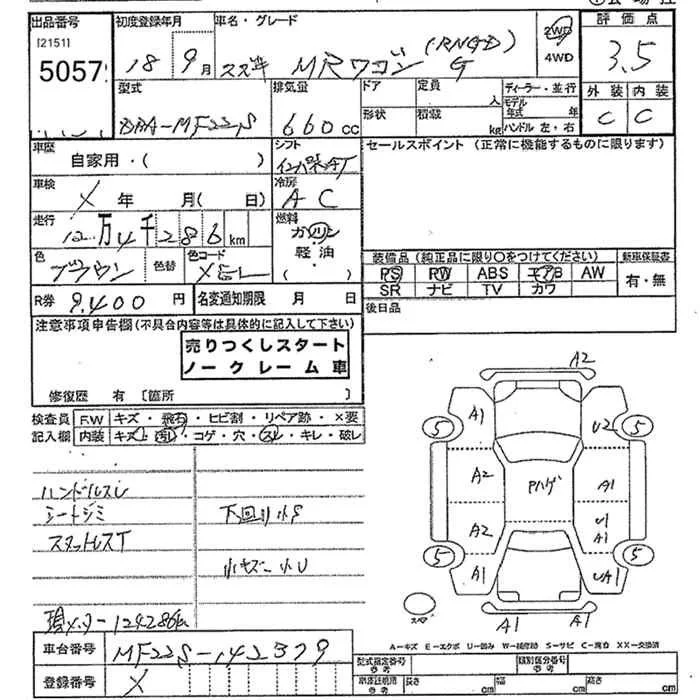 出品番号
[2151]
5057
初度登録年月
18 9月
車名・グレード
スズキ MRワゴン (RNGD) G
2WD
4WD
評価点
3.5
外装 内装
C C
型式
DBA-MF22S
排気量
660cc
ドア
形状
定員
人
積載
kg
ディーラー・並行
モデル年式 年
ハンドル 左・右
車歴
自家用・( )
シフト
車検
X 年 月( 日)
冷房
AC
走行
12万4千286km
燃料
ガソリン
軽油
( )
色
ブラウン
色替
色コード
R券 9,400円
名変通知期限 月 日
セールスポイント (正常に機能するものに限ります)
装備品(純正品に限り○をつけてください)
PS PW ABS エアB AW
SR ナビ TV カワ
新車保証書
有・無
後日品
注意事項申告欄(不具合内容等は具体的に記入して下さい)
売りつくしスタート
ノークレーム車
修復歴 有 [箇所 ]
検査員記入欄
F.W キズ・飛石・ヒビ割・リペア跡・×要
内装 キズ・汚レ・コゲ・穴・スレ・キレ・破レ
ハンドルスレ
シートシミ
スタットレスT
下回り小S
小キズ・小U
現メーター124286km
A2
A1 U2
5 5
A2 Pハゲ A1
A2 U1 A1
5 5
A1 UA1
スペア
A1 A1
A-キズ E-エクボ U-凹み W-補修跡 S-サビ C-腐食 XX-交換済
車台番号
MF22S-142379
登録番号
X
型式指定番号 参考
類別区分番号 参考
長さ cm 幅 cm 高さ cm